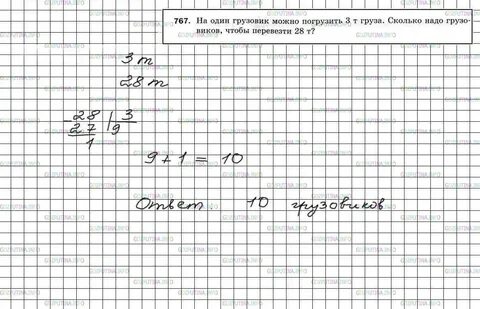 767. На один грузовик можно погрузить 3 т груза. Сколько надо грузо-
виков, чтобы перевезти 28 т?
3 т
28 т
- 28 | 3
27 | 9
1
9 + 1 = 10
Ответ: 10 грузовиков